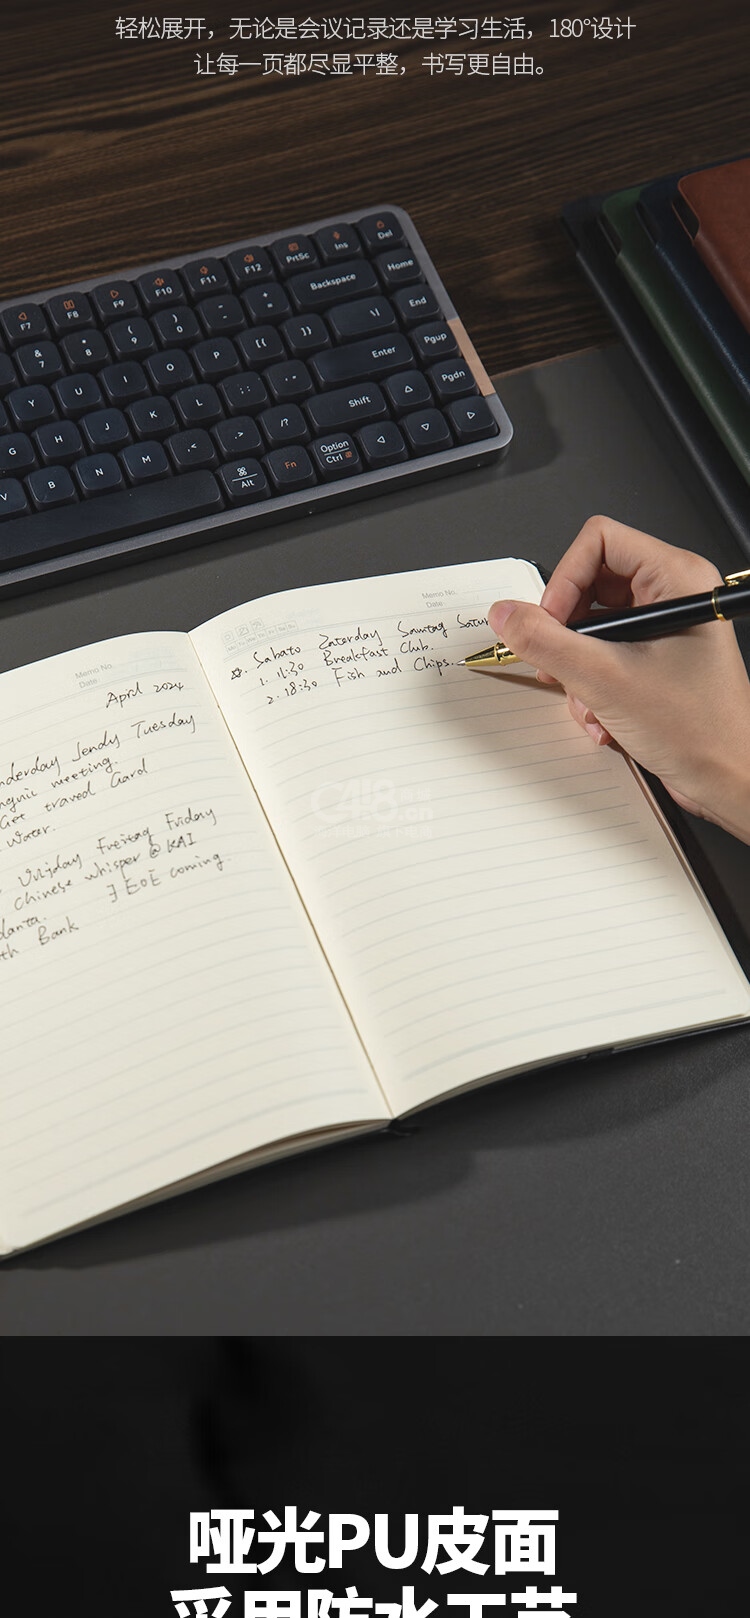 轻松展开，无论是会议记录还是学习生活，180°设计
让每一页都尽显平整，书写更自由。
Del
Ins
PrtSc
F12
F11
F10
F9
F8
F7
Home
Backspace
End
Enter
Pgup
Shift
Pgdn
Option
Ctrl
Fn
Alt
Y U I O P
G H J K L
V B N M
Memo No.
Date
April 2024
Tuesday
meeting.
Get travel Card
Water.
Vrijday Freitag Friday
Chinese whisper @ KAI
coming.
th Bank
Memo No.
Date
Sabato Zaterday Samtag Satur
1. 11:30 Breakfast Club.
2. 18:30 Fish and Chips.
C418.cn
哑光PU皮面
采用防水工艺